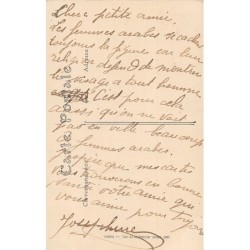 Chère petite amie.
Les femmes arabes se cachent
toujours la figure car leur
religion défend de montrer
le visage a tout homme
C'est pour cela
aussi qu'on ne voit
pas en ville beaucoup
de femmes arabes.
J'espère que mes cartes
vous trouverons en bonne
santé votre amie qui
vous aime pour toujours
Josephine
Carte postale
Correspondance
Adresse